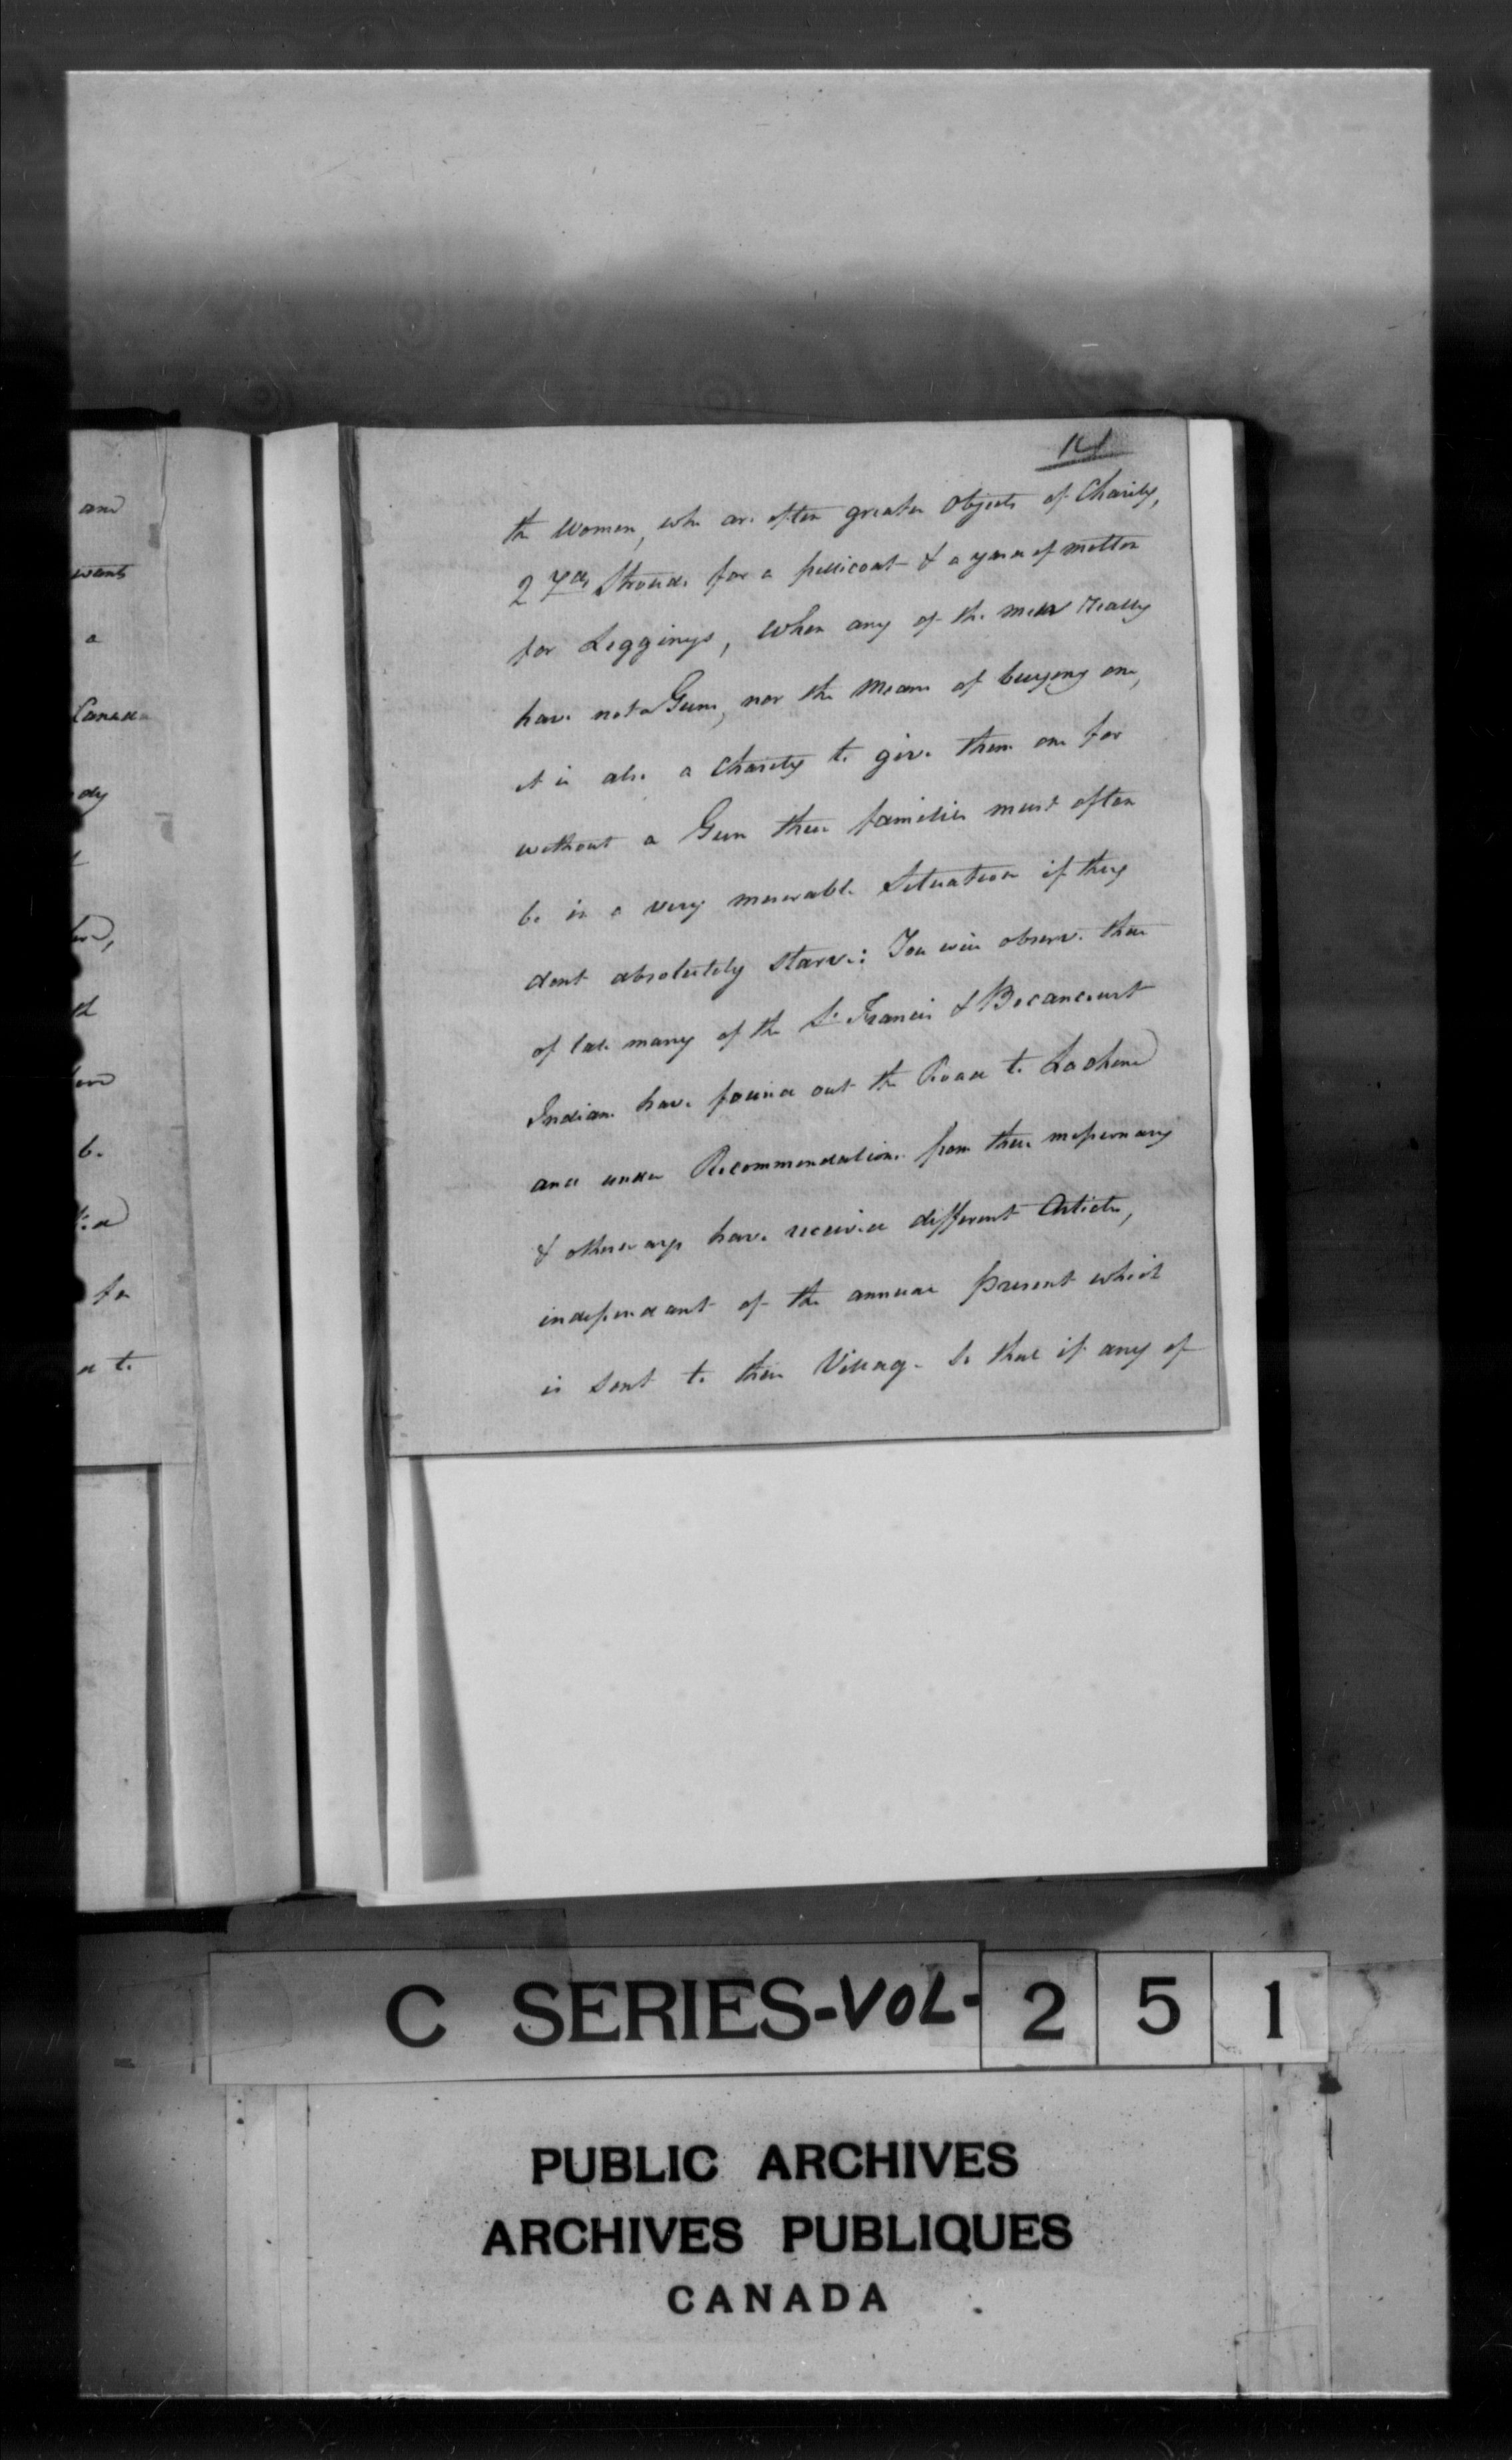 and
wants
a
Canada
b.
for
a to
the Women, who are often greater Objects of Charity,
2 Yds Strouds for a petticoat & a yard of molton
for Leggings, When any of the men really
have not a Gun, nor the Means of buying one,
it is also a Charity to give them one for
without a Gun their families must often
be in a very miserable Situation if they
dont absolutely starve: You will observe that
of late many of the St Francis & Becancourt
Indians have found out the Road to Lachine
and under Recommendations from their missionary
& otherways have received different Articles,
independant of the annual present which
is sent to their Village so that if any of
C SERIES-VOL-251
PUBLIC ARCHIVES
ARCHIVES PUBLIQUES
CANADA